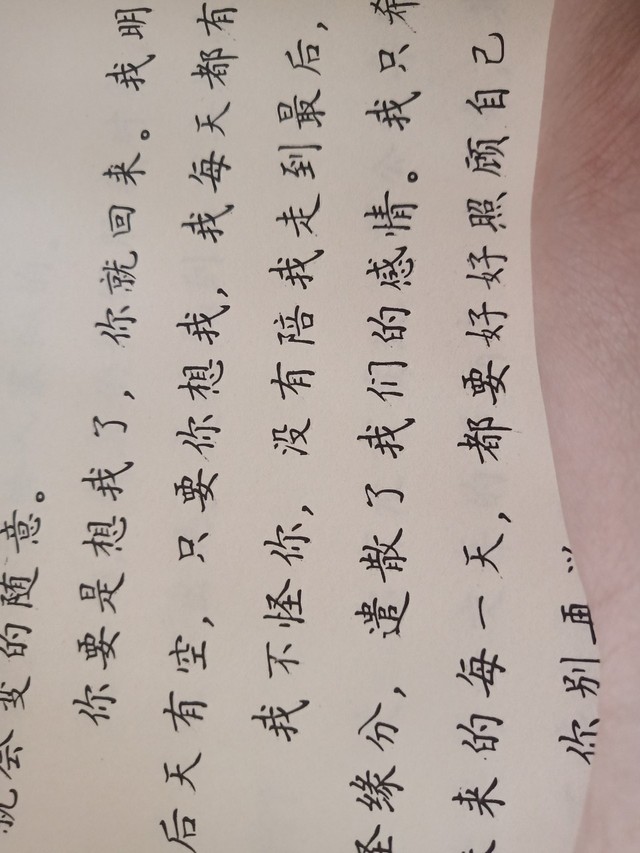 就会变的随意。
你要是想我了，你就回来。我明
后天有空，只要你想我，我每天都有
我不怪你，没有陪我走到最后，
怪缘分，遣散了我们的感情。我只希
来的每一天，都要好好照顾自己
你别再